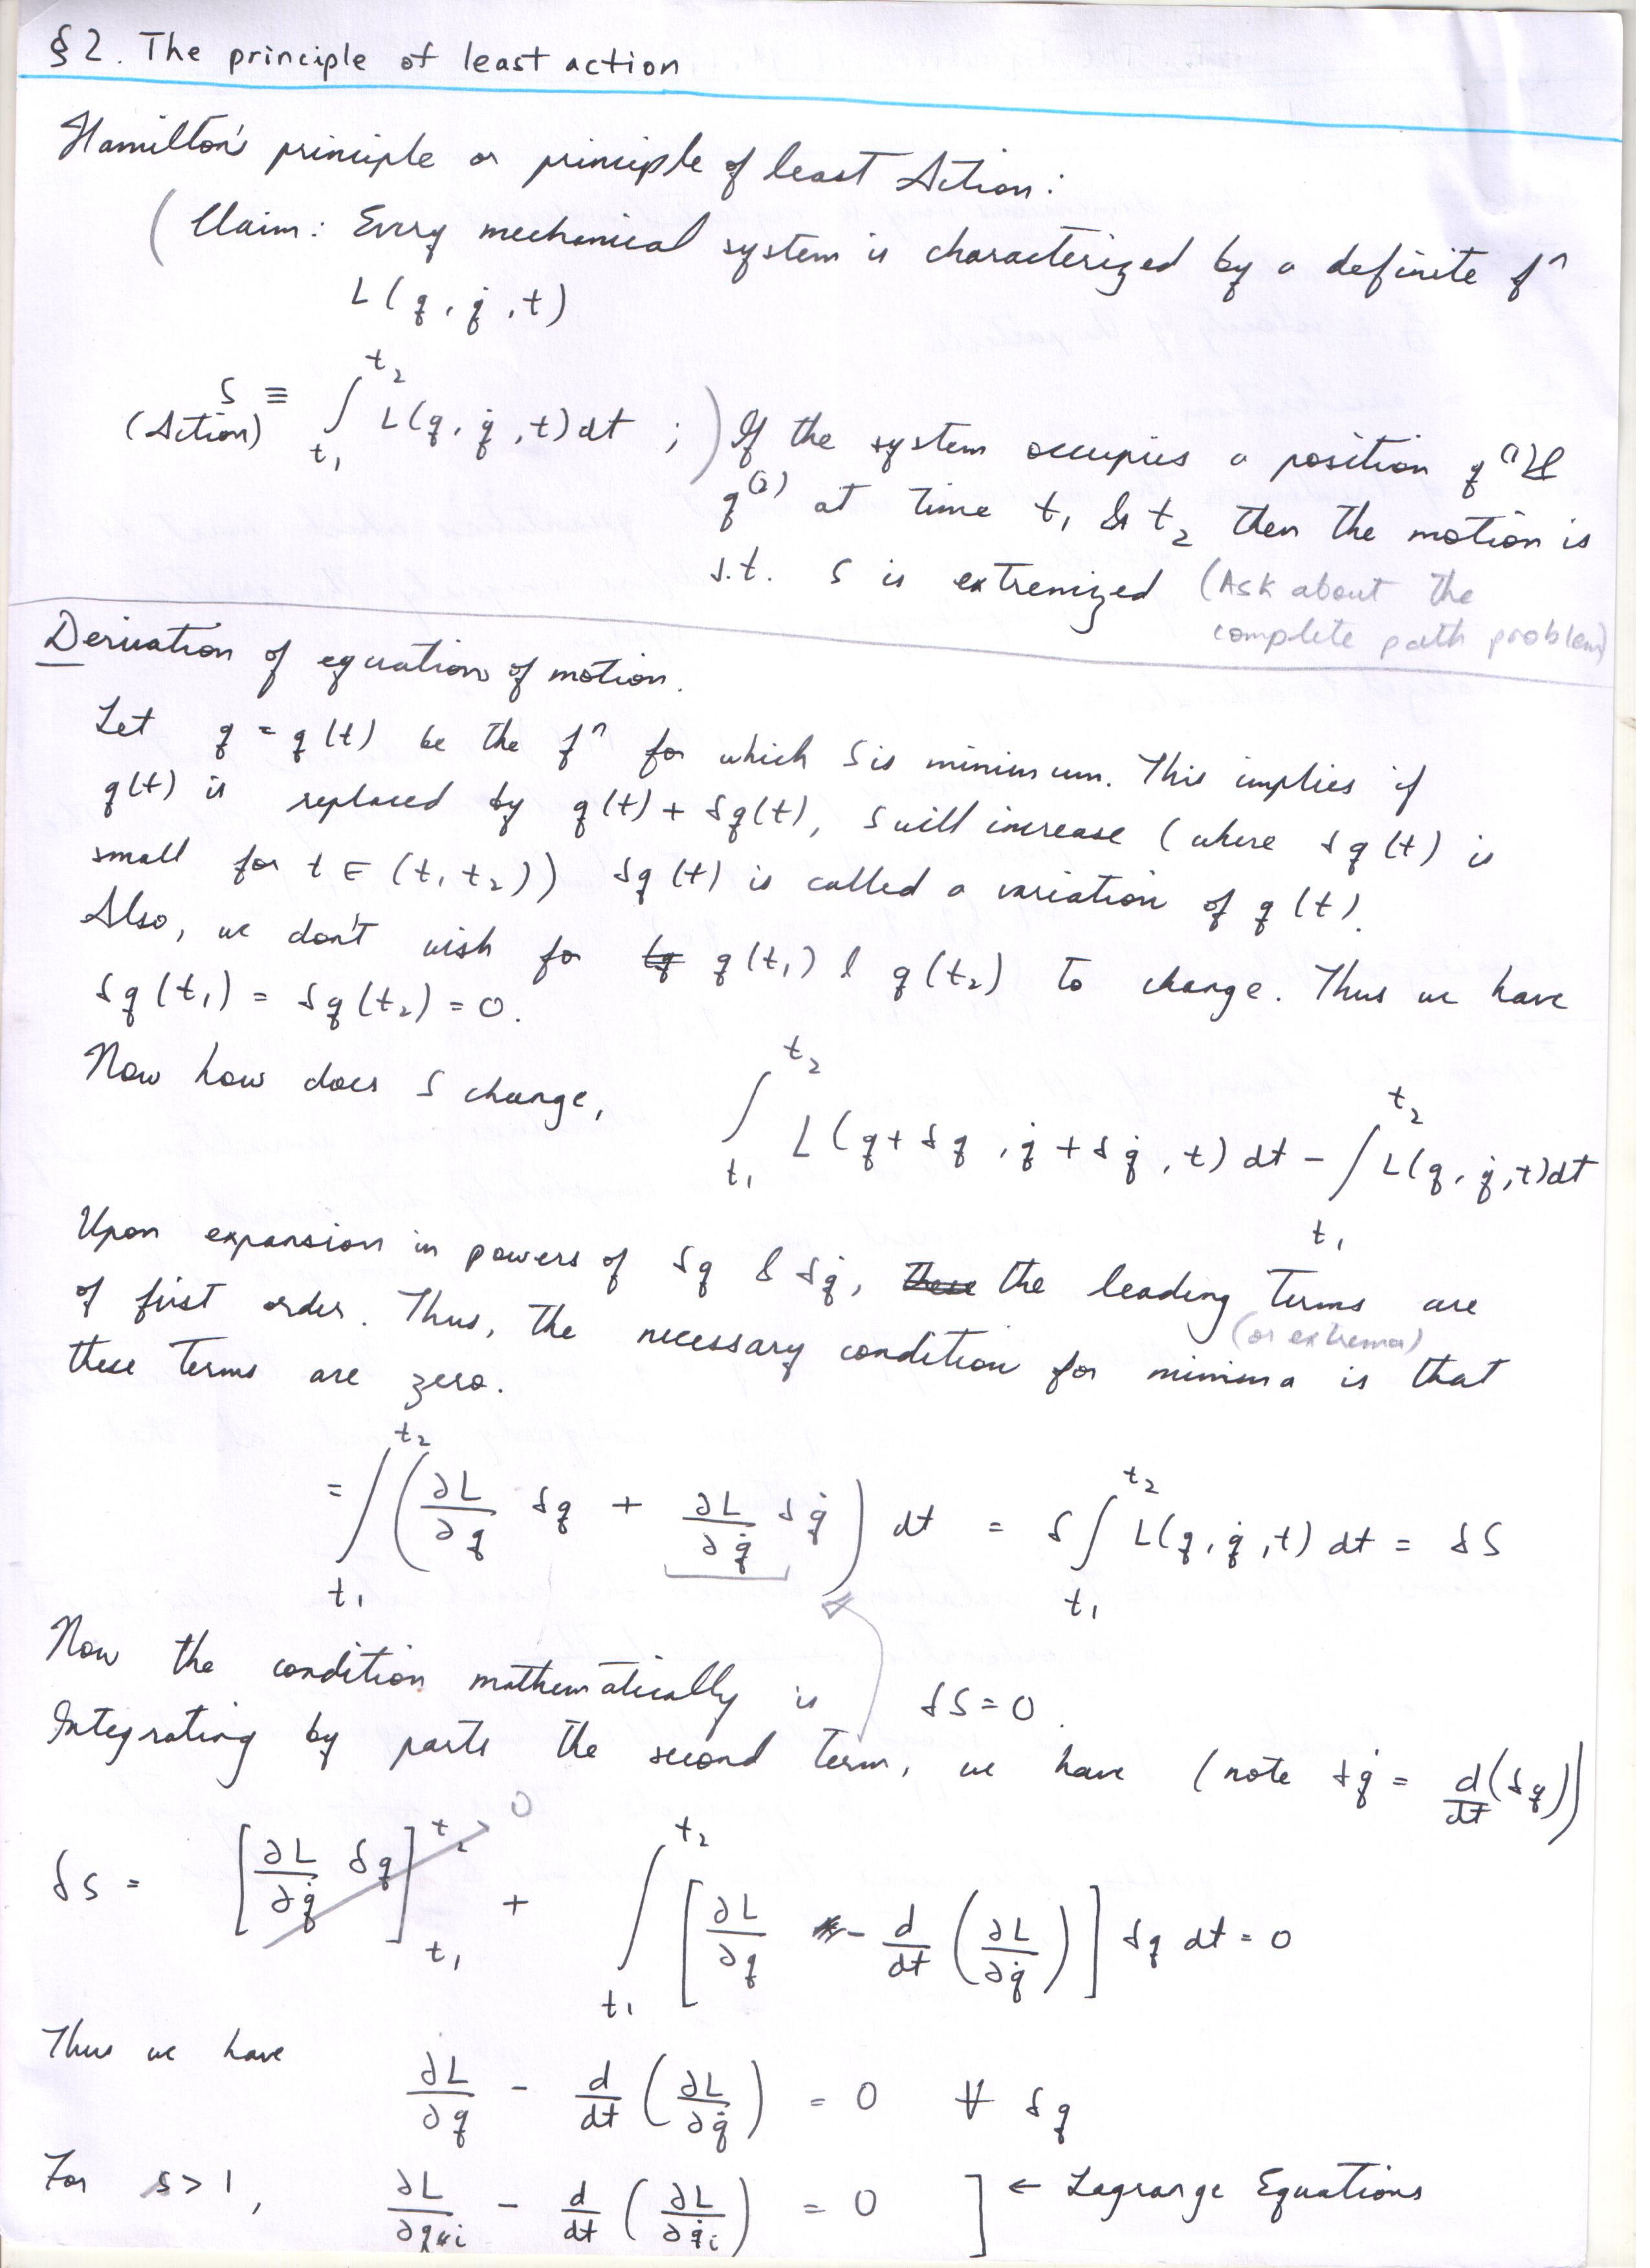 §2. The principle of least action
Hamilton's principle or principle of least Action:
(Claim: Every mechanical system is characterized by a definite fⁿ
L(q, q̇, t)
S (Action) ≡ ∫_{t₁}^{t₂} L(q, q̇, t) dt ; ) If the system occupies a position q⁽¹⁾ &
q⁽²⁾ at time t₁ & t₂ then the motion is
s.t. S is extremized (Ask about the
complete path problem)
Derivation of equation of motion.
Let q = q(t) be the fⁿ for which S is minimum. This implies if
q(t) is replaced by q(t) + δq(t), S will increase (where δq(t) is
small for t ∈ (t₁, t₂)) δq(t) is called a variation of q(t).
Also, we don't wish for q(t₁) & q(t₂) to change. Thus we have
δq(t₁) = δq(t₂) = 0.
Now how does S change, ∫_{t₁}^{t₂} L(q+δq, q̇+δq̇, t) dt − ∫_{t₁}^{t₂} L(q, q̇, t) dt
Upon expansion in powers of δq & δq̇, these the leading terms are
of first order. Thus, the necessary condition for minima (or extrema) is that
these terms are zero.
= ∫_{t₁}^{t₂} (∂L/∂q δq + ∂L/∂q̇ δq̇) dt = δ∫_{t₁}^{t₂} L(q, q̇, t) dt = δS
Now the condition mathematically is δS = 0.
Integrating by parts the second term, we have (note δq̇ = d/dt (δq))
δS = [∂L/∂q̇ δq]_{t₁}^{t₂} → 0 + ∫_{t₁}^{t₂} [∂L/∂q − d/dt (∂L/∂q̇)] δq dt = 0
Thus we have ∂L/∂q − d/dt (∂L/∂q̇) = 0 ∀ δq
For s > 1, ∂L/∂qᵢ − d/dt (∂L/∂q̇ᵢ) = 0 ] ← Lagrange Equations